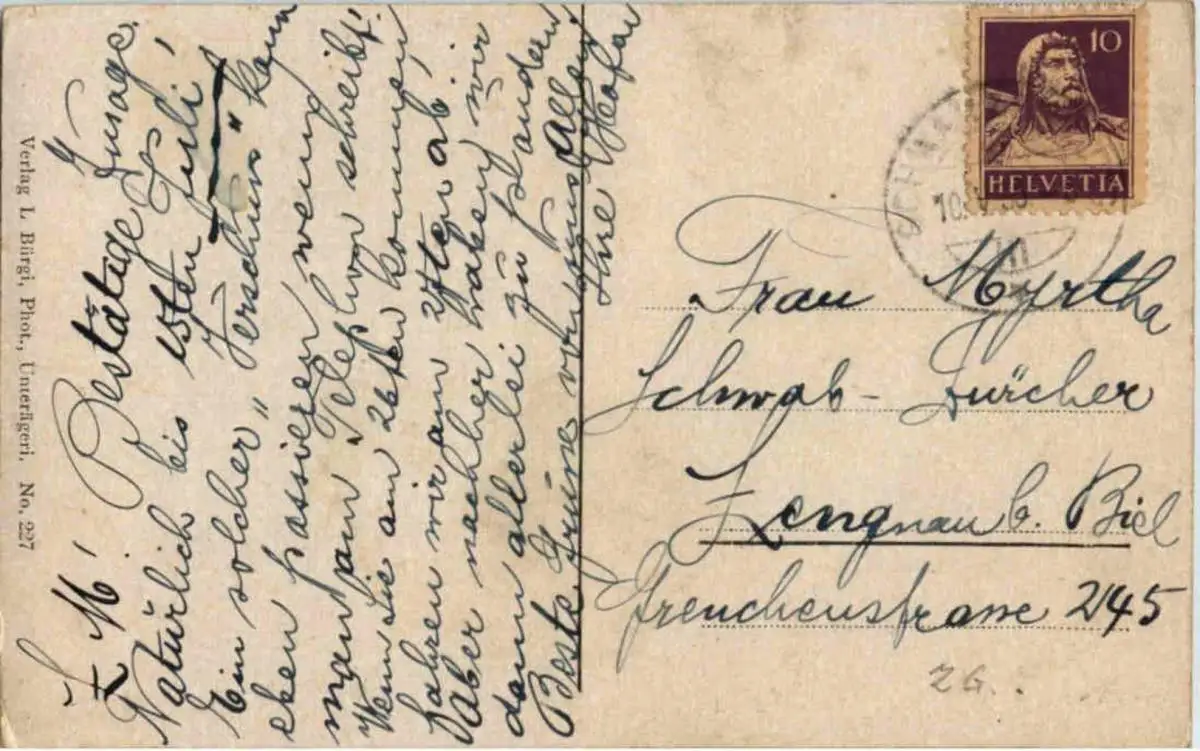 L. M! Bestätige Zusage.
Natürlich bis 15ten Juli!
Ein solcher „Verschrieb" kann
eben passieren, wenn
man am Telephon schreibt!
Wenn Sie am 26ten kommen
fahren wir am 27ten ab.
Aber nachher haben wir
dann allerlei zu plaudern
Beste Grüsse von uns allen
Ihre
Verlag L. Bürgi, Phot., Unterägeri. No. 227
10
HELVETIA
Frau Myrtha
Schwab-Zürcher
Lengnau b. Biel
Grenchenstrasse 245
ZG.